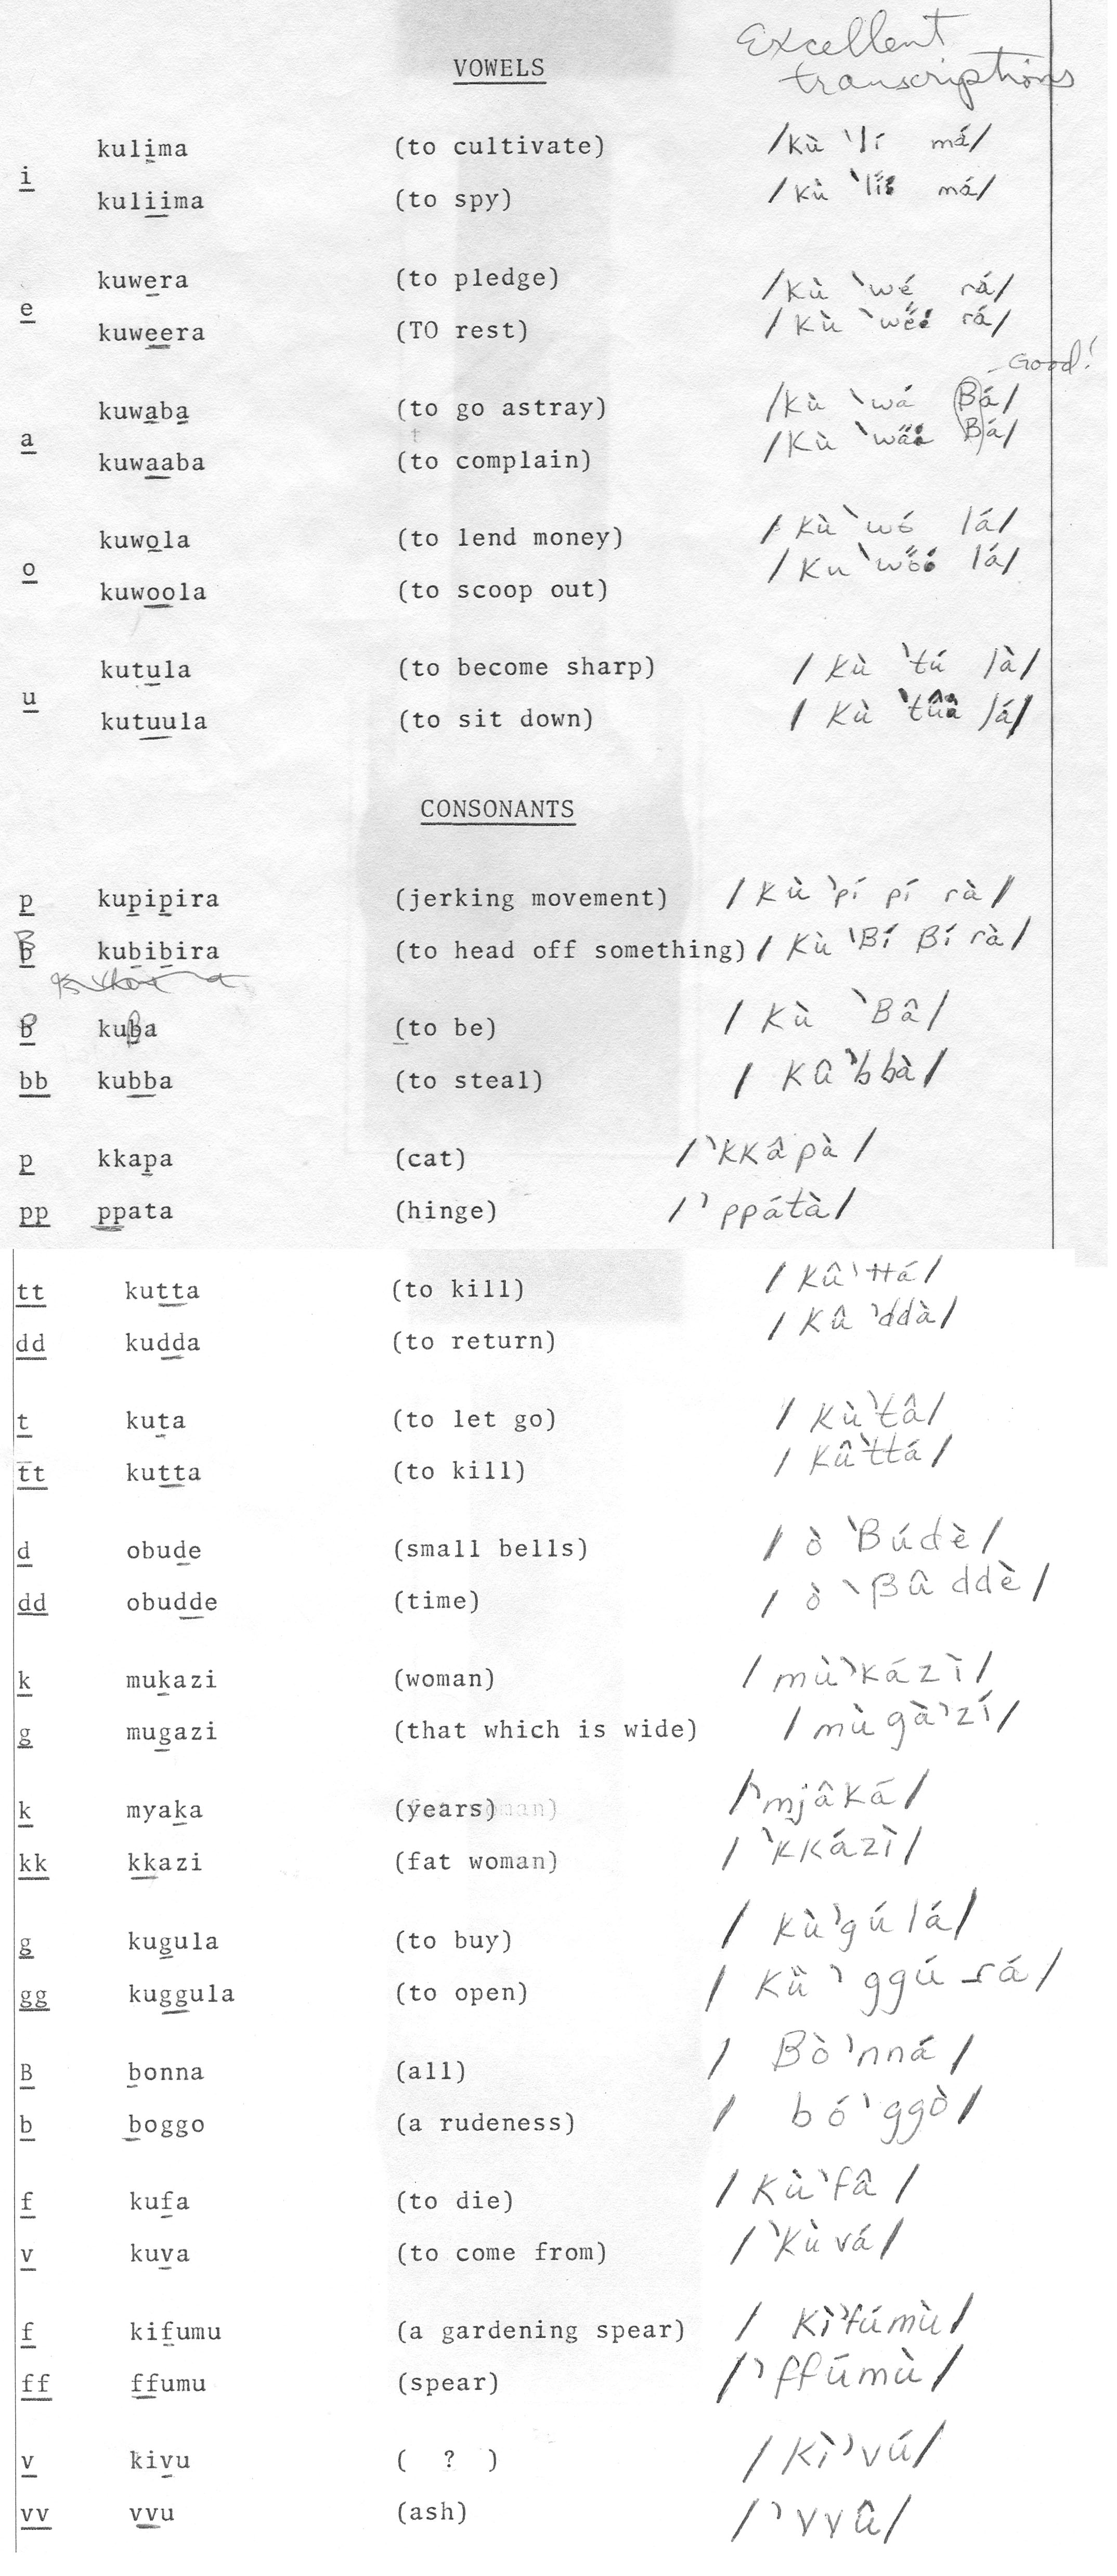 Excellent
VOWELS
transcriptions
kulima (to cultivate) /Kù ˋlí má/
i
kuliima (to spy) /Kù ˋlíí má/
kuwera (to pledge) /Kù ˋwé rá/
e
kuweera (TO rest) /Kù ˋwéé rá/
Good!
kuwaba (to go astray) /Kù ˋwá Bá/
a
kuwaaba (to complain) /Kù ˋwáá Bá/
kuwola (to lend money) /Kù ˋwó lá/
o
kuwoola (to scoop out) /Ku ˋwóó lá/
kutula (to become sharp) /Kù ˋtú là/
u
kutuula (to sit down) /Kù ˋtûû lá/
CONSONANTS
p kupipira (jerking movement) /Kù ˋpí pí rà/
B kubibira (to head off something) /Kù ˋBí Bí rà/
B kuβa (to be) /Kù ˋBâ/
bb kubba (to steal) /Kû ˋbbà/
p kkapa (cat) /ˋkkâpà/
pp ppata (hinge) /ˋppátà/
tt kutta (to kill) /Kûˋttá/
dd kudda (to return) /Kû ˋddà/
t kuta (to let go) /Kùˋtâ/
tt kutta (to kill) /Kûˋttá/
d obude (small bells) /ò ˋBúdè/
dd obudde (time) /ò ˋβû ddè/
k mukazi (woman) /mùˋkázì/
g mugazi (that which is wide) /mù gàˋzí/
k myaka (years) /ˋmjâká/
kk kkazi (fat woman) /ˋkkázì/
g kugula (to buy) /Kùˋgú lá/
gg kuggula (to open) /Kù ˋggú rá/
B bonna (all) /Bò ˋnná/
b boggo (a rudeness) /bó ˋggò/
f kufa (to die) /Kùˋfâ/
v kuva (to come from) /ˋKù vá/
f kifumu (a gardening spear) /Kìˋfúmù/
ff ffumu (spear) /ˋffúmù/
v kivu ( ? ) /Kìˋvú/
vv vvu (ash) /ˋvvû/